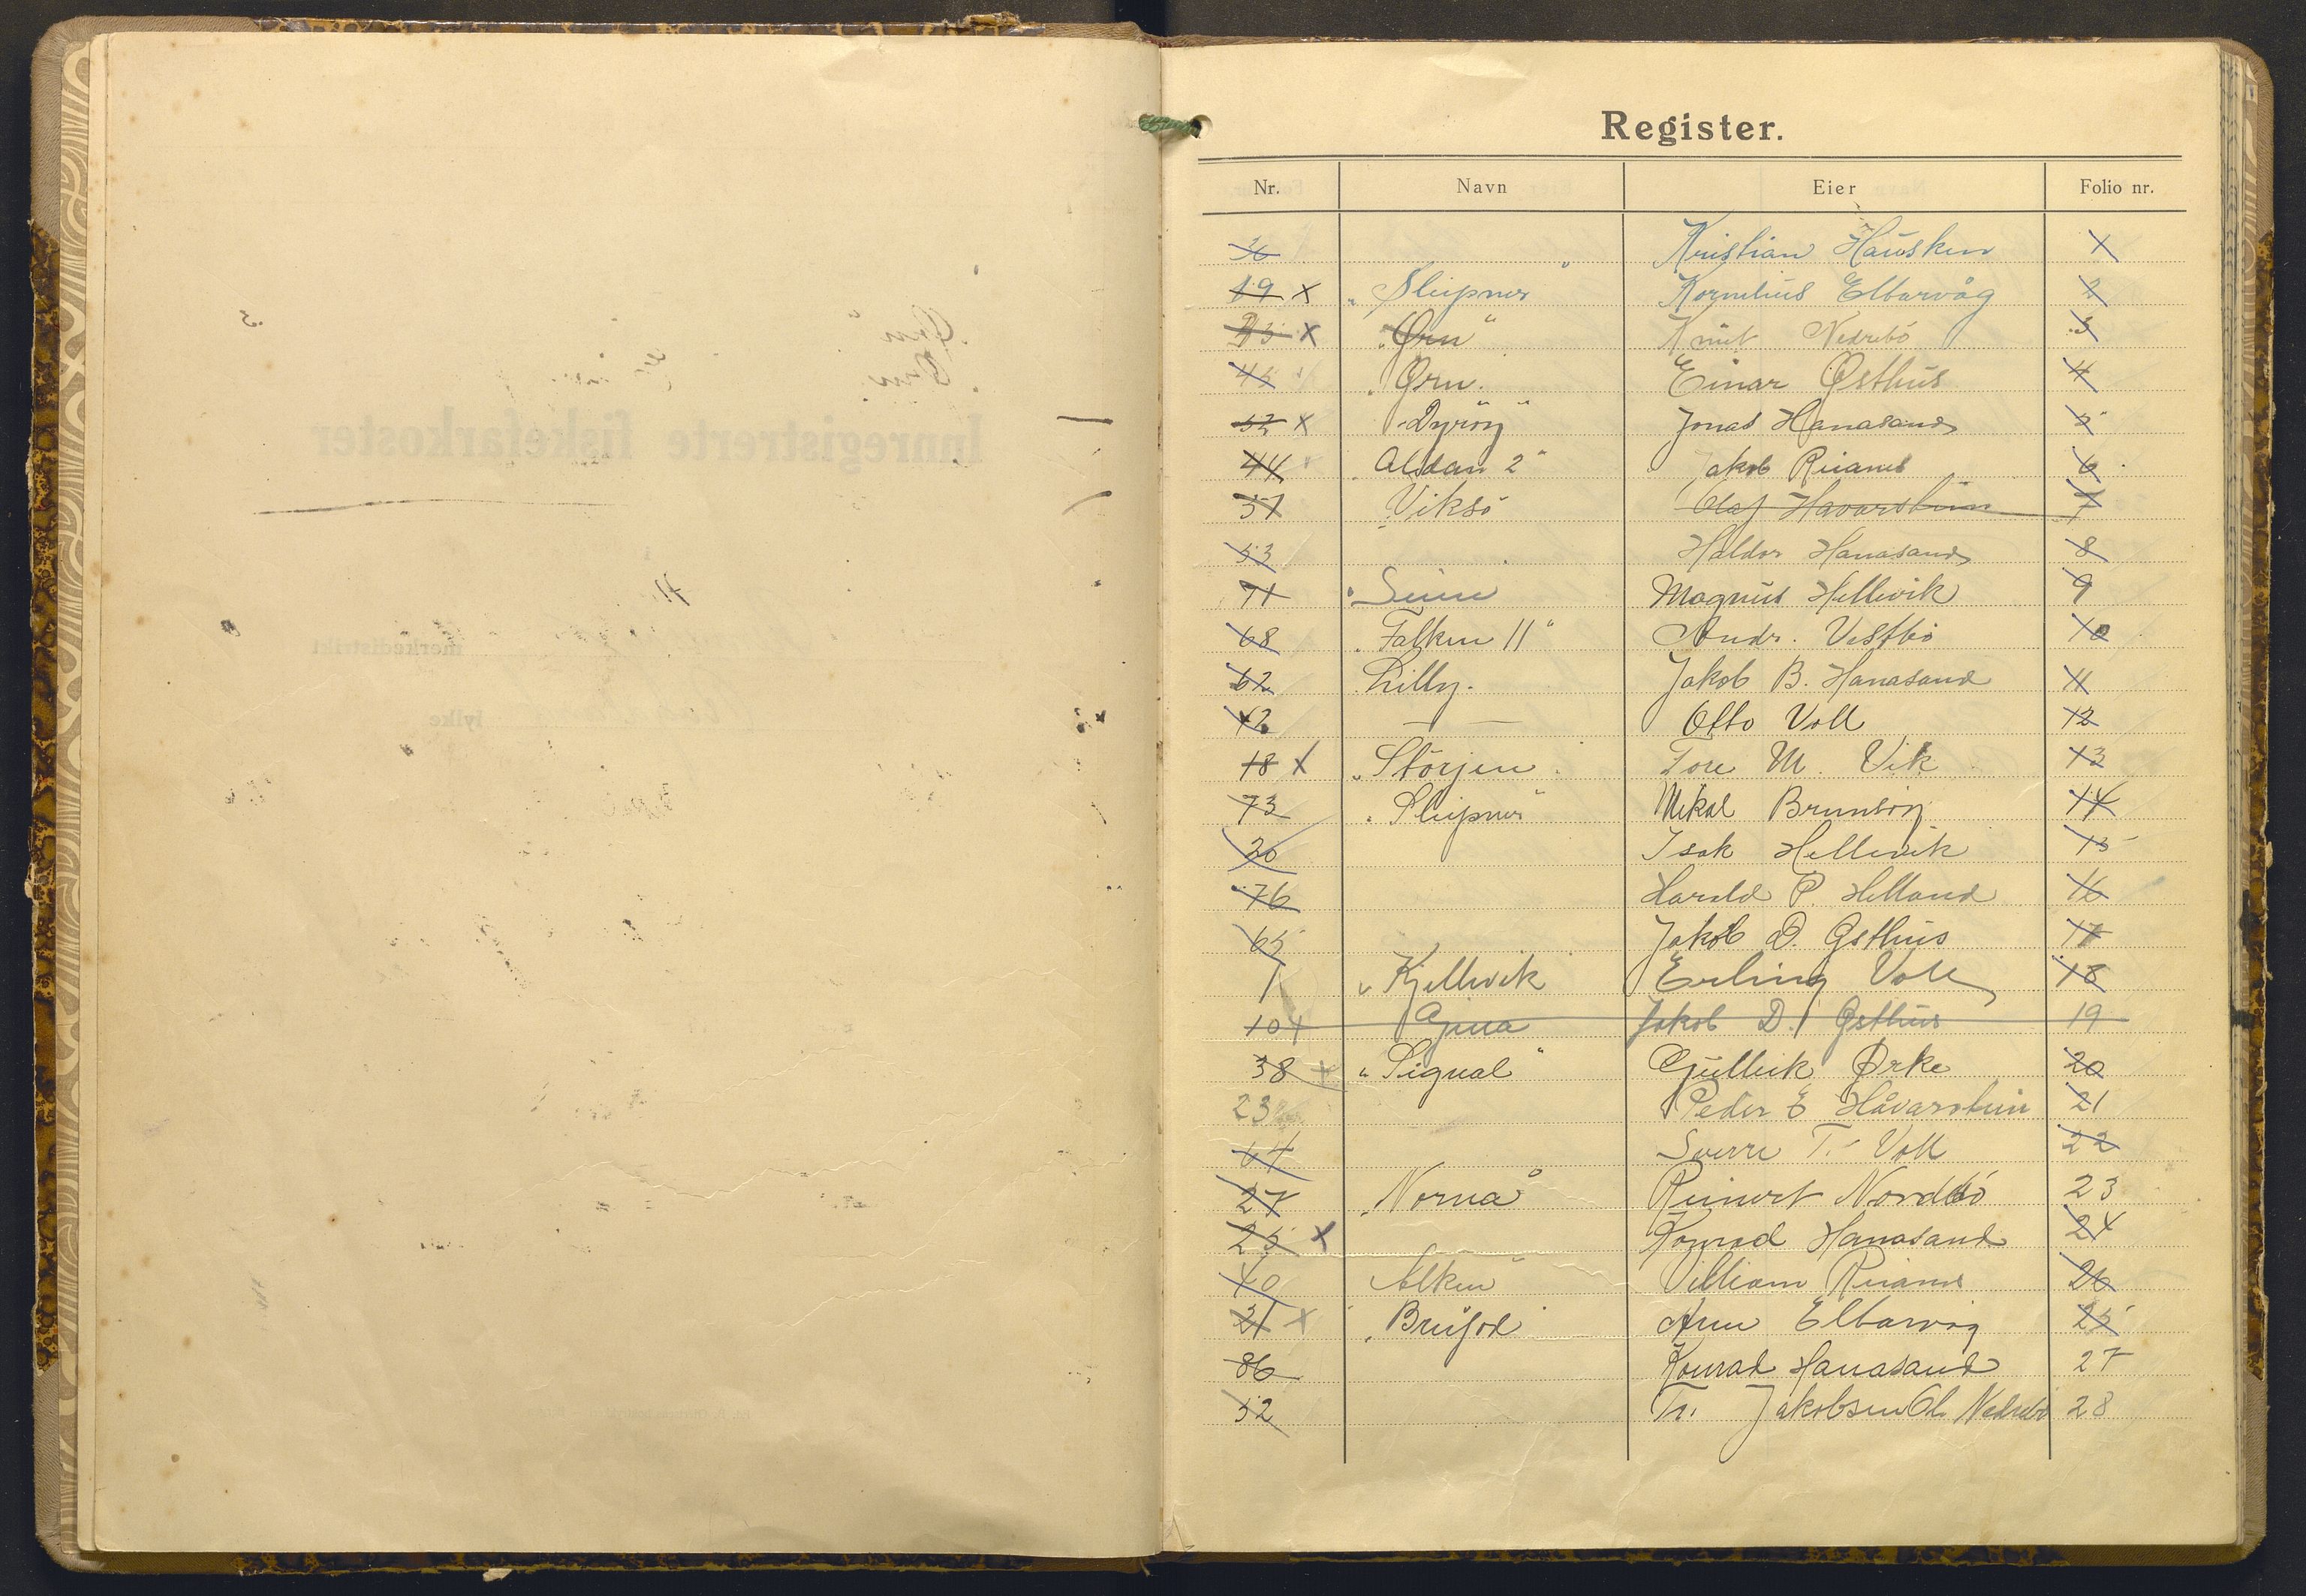 Register.
Nr. Navn Eier Folio nr.
36 Kristian Hausken 1
19 x "Sleipner" Kornelius Eltarvåg 2
x "Ørn" Knut Nedrebö 3
45 "Ørn" Einar Østhus 4
52 x "Dyröy" Jonas Hanasand 5
44 "Alsdan 2" Jakob Reianes 6
51 "Viksö" Olaf Havarstein 7
53 Haldor Hanasand 8
71 Magnus Hellevik 9
68 "Falken II" Andr. Vestbö 10
62 Lilly. Jakob B. Hanasand 11
Otto Voll 12
18 x "Störjen" Tore M. Vik 13
73 "Sleipner" Mikal Brunsöy 14
20 Isak Hellevik 15
76 Harald P. Helland 16
65 Jakob D. Østhus 17
1 "Kjellevik Erling Voll 18
10 x Jakob D. Østhus 19
38 x "Signal" Gulleik Ørke 20
23 Peder E Håvarstein 21
64 Sverre T. Voll 22
27 "Norna" Reinert Nordbö 23
25 x Konrad Hanasand 24
40 Alken" Villiam Reianes 26
21 x "Brusod" Arne Eltarvåg 25
86 Konrad Hanasand 27
52 Tr. Jakobsen Ol. Nedrebö 28
Innregistrerte fiskefarkoster
merkedistrikt
fylke